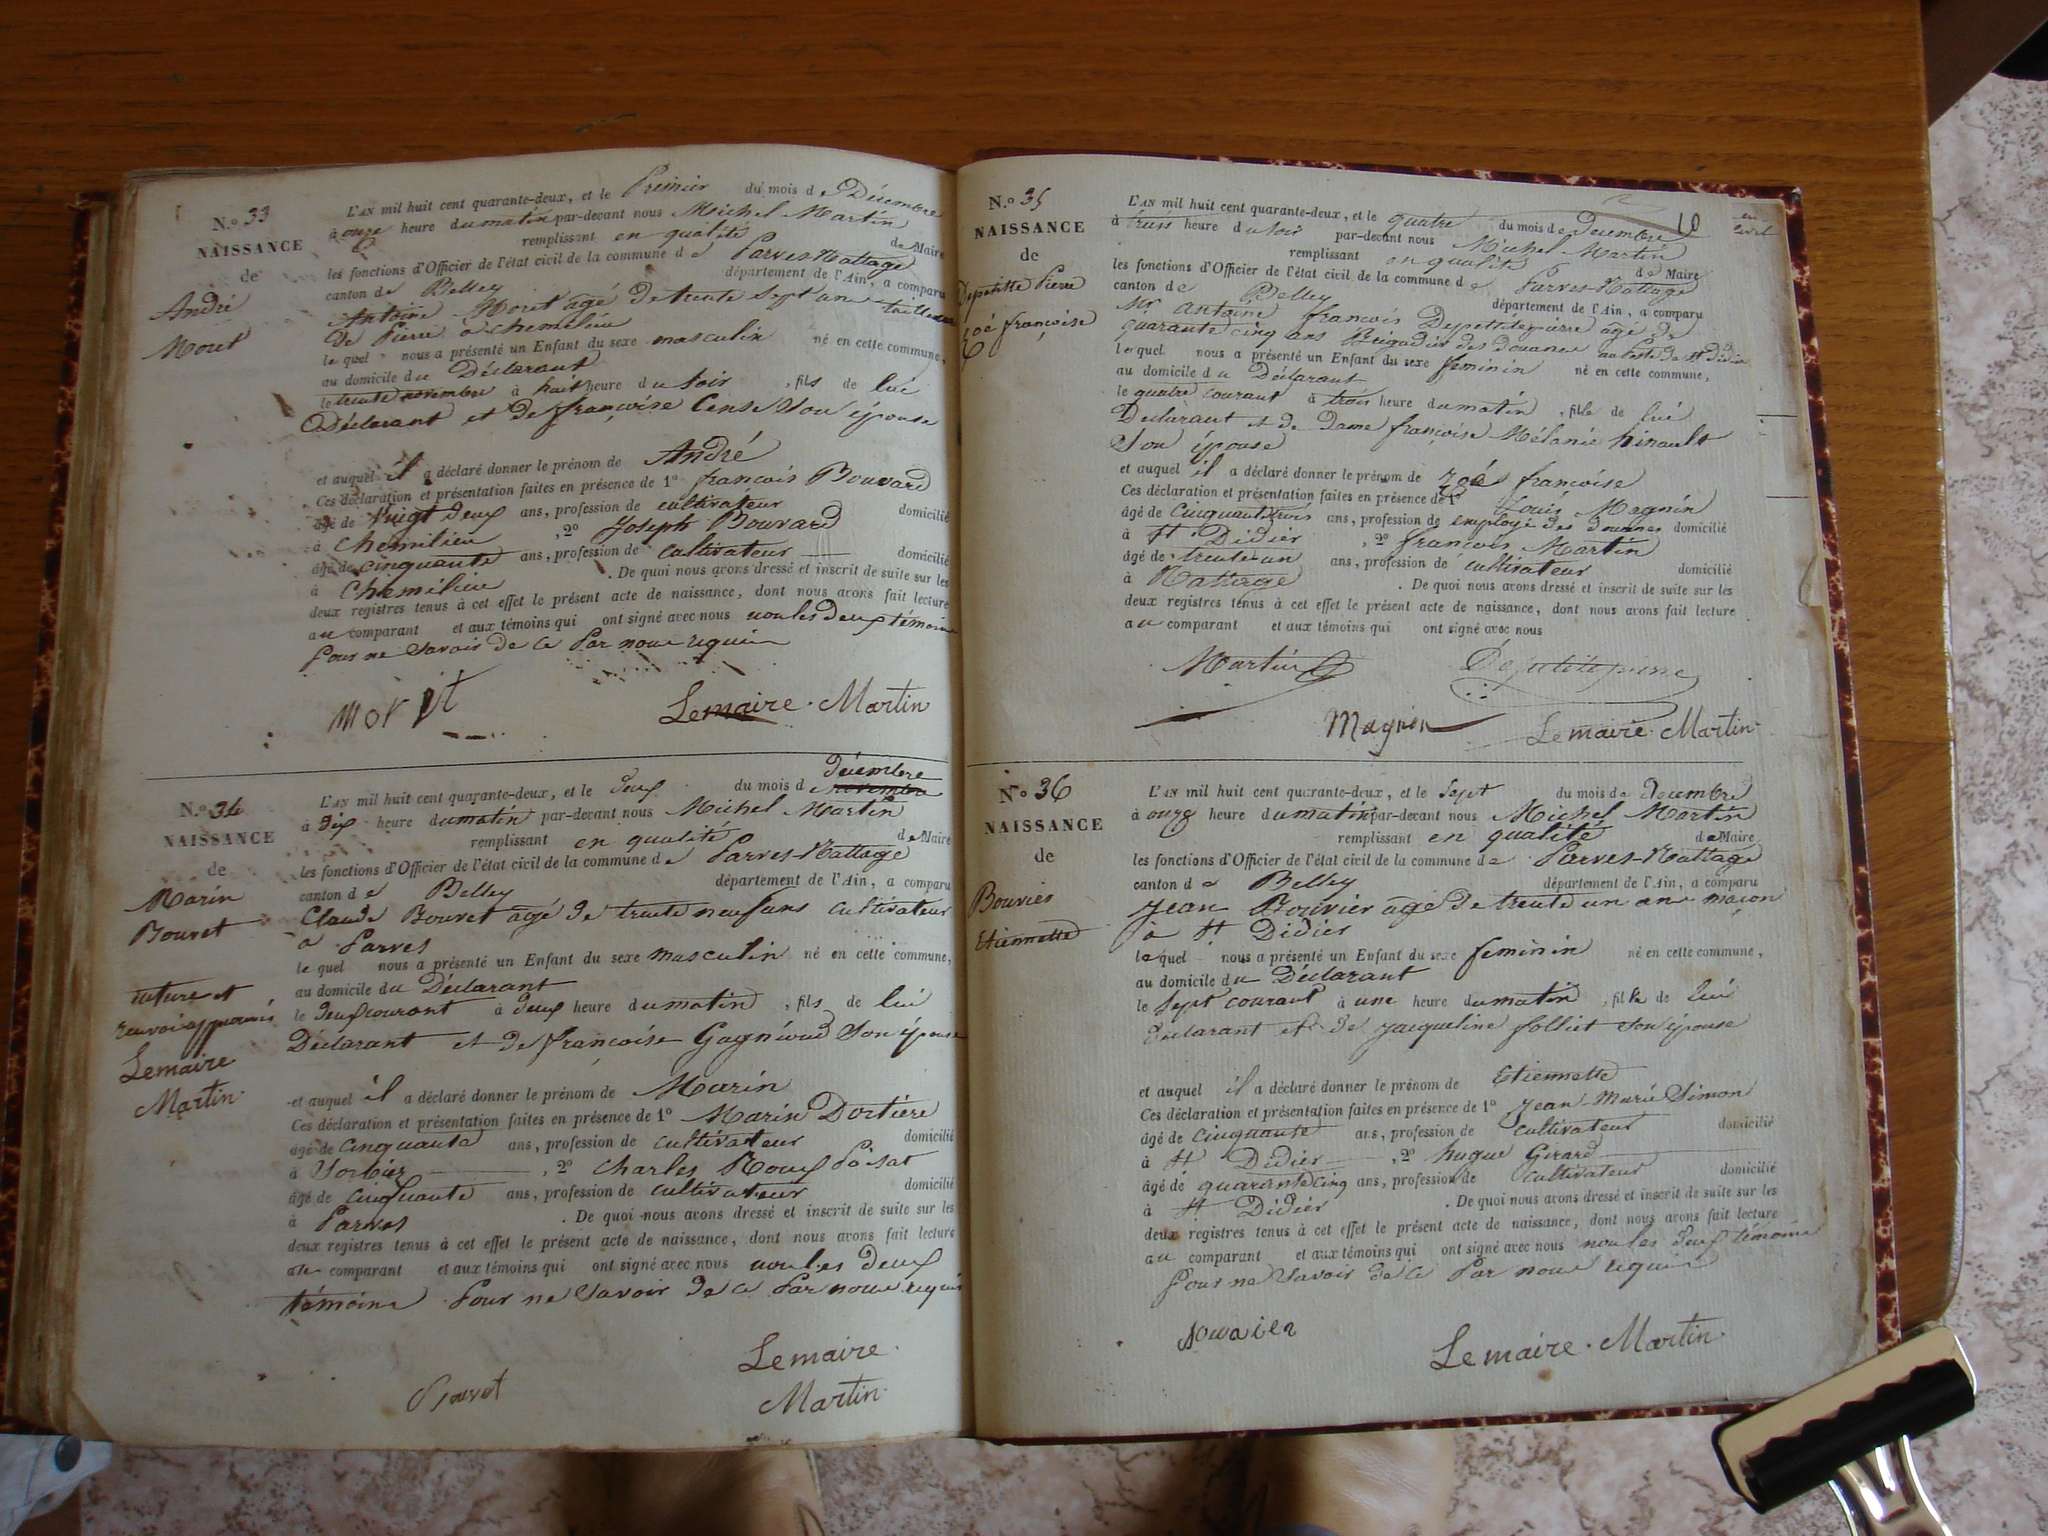 N.º 33
NAISSANCE
de
André
Moret
L'AN mil huit cent quarante-deux, et le Premier du mois de Décembre
à onze heure du matin par-devant nous Michel Martin
remplissant en qualité de Maire
les fonctions d'Officier de l'état civil de la commune de Parves-Nattage
canton de Belley département de l'Ain, a comparu
Antoine Moret agé de trente Sept an tailleur
de Pierre à chemilieu
le quel nous a présenté un Enfant du sexe masculin né en cette commune,
au domicile du Déclarant
le trente novembre à huit heure du soir, fils de lui
Déclarant et de françoise Cense Son épouse
et auquel il a déclaré donner le prénom de André
Ces déclaration et présentation faites en présence de 1º françois Bouvard
âgé de Vuigt deux ans, profession de cultivateur domicilié
à chemilieu, 2º Joseph Bouvard
âgé de cinquante ans, profession de cultivateur domicilié
à Chemilieu. De quoi nous avons dressé et inscrit de suite sur les
deux registres tenus à cet effet le présent acte de naissance, dont nous avons fait lecture
au comparant et aux témoins qui ont signé avec nous non les deux témoins
Pour ne Savoir de ce Par nous requis
Lemaire. Martin
N.º 34
NAISSANCE
de
Marin
Bouvet
rature et
renvoi approuvés
Lemaire
Martin
L'AN mil huit cent quarante-deux, et le deux du mois d décembre
novembre
à dix heure du matin par-devant nous Michel Martin
remplissant en qualité de Maire
les fonctions d'Officier de l'état civil de la commune de Parves-Nattage
canton de Belley département de l'Ain, a comparu
Claude Bouvet agé de trente neuf ans cultivateur
a Parves
le quel nous a présenté un Enfant du sexe masculin né en cette commune,
au domicile du Déclarant
le deux courant à deux heure du matin, fils de lui
Déclarant et de françoise Son épouse
et auquel il a déclaré donner le prénom de Marin
Ces déclaration et présentation faites en présence de 1º Marin Dortière
âgé de cinquante ans, profession de cultivateur domicilié
à Sorbier, 2º Charles Roux Poisat
âgé de cinquante ans, profession de cultivateur domicilié
à Parves. De quoi nous avons dressé et inscrit de suite sur les
deux registres tenus à cet effet le présent acte de naissance, dont nous avons fait lecture
au comparant et aux témoins qui ont signé avec nous non les deux
témoins Pour ne Savoir de ce Par nous requis
Lemaire.
Bouvet
Martin
10
N.º 35
NAISSANCE
de
Depetitte Pierre
Zoé françoise
L'AN mil huit cent quarante-deux, et le quatre du mois de Decembre
à trois heure du soir par-devant nous Michel Martin
remplissant en qualité de Maire
les fonctions d'Officier de l'état civil de la commune de Parves-Nattage
canton de Belley département de l'Ain, a comparu
Mr Antoine françois Depetitepierre agé de
quarante cinq ans Brigadier des douanes au Poste de St Didier
le quel nous a présenté un Enfant du sexe feminin né en cette commune,
au domicile du Déclarant
le quatre courant à trois heure du matin, fille de lui
Déclarant et de Dame françoise Mélanie hirault
Son épouse
et auquel il a déclaré donner le prénom de Zoé françoise
Ces déclaration et présentation faites en présence de 1º Louis Magnin
âgé de Cinquante trois ans, profession de employé des douanes domicilié
à St Didier, 2º françois Martin
âgé de trente un ans, profession de cultivateur domicilié
à Nattage. De quoi nous avons dressé et inscrit de suite sur les
deux registres tenus à cet effet le présent acte de naissance, dont nous avons fait lecture
au comparant et aux témoins qui ont signé avec nous
Martin Depetitepierre
Magnin Lemaire. Martin
Nº 36
NAISSANCE
de
Bouvier
Etiennette
L'AN mil huit cent quarante-deux, et le Sept du mois de decembre
à onze heure du matin par-devant nous Michel Martin
remplissant en qualité de Maire
les fonctions d'Officier de l'état civil de la commune de Parves-Nattage
canton de Belley département de l'Ain, a comparu
Jean Bouvier agé de trente un ans maçon
à St Didier
le quel nous a présenté un Enfant du sexe feminin né en cette commune,
au domicile du Déclarant
le Sept courant à une heure du matin, fille de lui
Declarant et de Jacqueline folliet Son épouse
et auquel il a déclaré donner le prénom de Etiennette
Ces déclaration et présentation faites en présence de 1º Jean Marie Simon
âgé de cinquante ans, profession de cultivateur domicilié
à St Didier, 2º hugue Girard
âgé de quarante cinq ans, profession de cultivateur domicilié
à St Didier. De quoi nous avons dressé et inscrit de suite sur les
deux registres tenus à cet effet le présent acte de naissance, dont nous avons fait lecture
au comparant et aux témoins qui ont signé avec nous non les deux témoins
Pour ne Savoir de ce Par nous requis
Lemaire. Martin